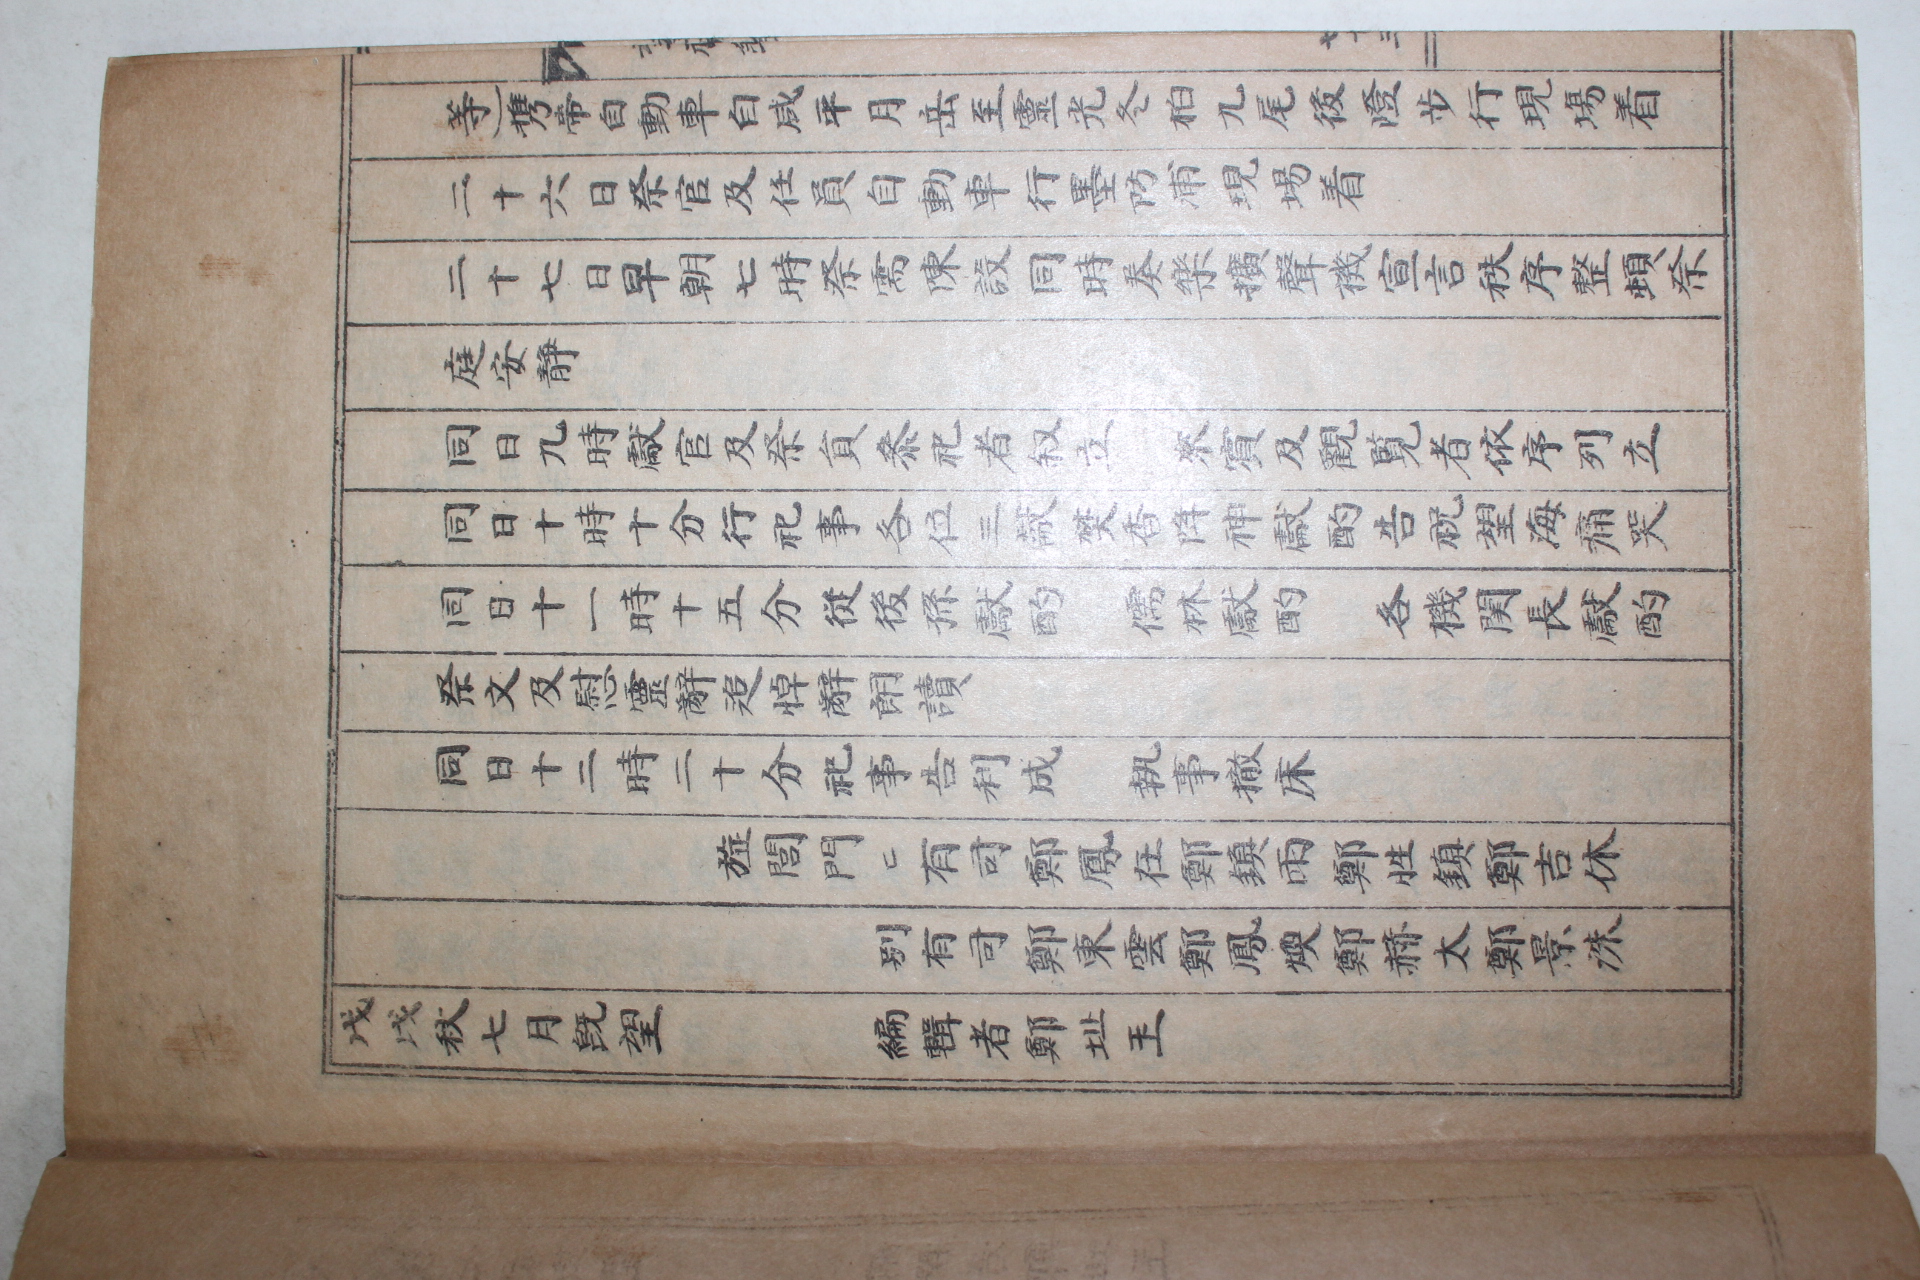 等)携帝自動車自咸平月岳至靈光冬柏九尾後隥步行現場着
二十六日祭官及任員自動車行墨防浦現場着
二十七日早朝七時祭需陳設同時奏樂擴聲機宣言秩序整頓祭
庭安静
同日九時獻官及祭員叅祀者叙立 來賓及觀覧者依序列立
同日十時十分行祀事各位三獻焚香降神獻酌告祝望海痛哭
同日十一時十五分從後孫獻酌 儒林獻酌 各機関長獻酌
祭文及慰靈辭追悼辭朗讀
同日十二時二十分祀事告利成 執事撤床
旌閭門ㄷ有司鄭鳳在鄭鎮雨鄭性鎮鄭吉休
别有司鄭東雲鄭鳳煥鄭赫太鄭景洙
戊戌秋七月旣望 編輯者鄭址王